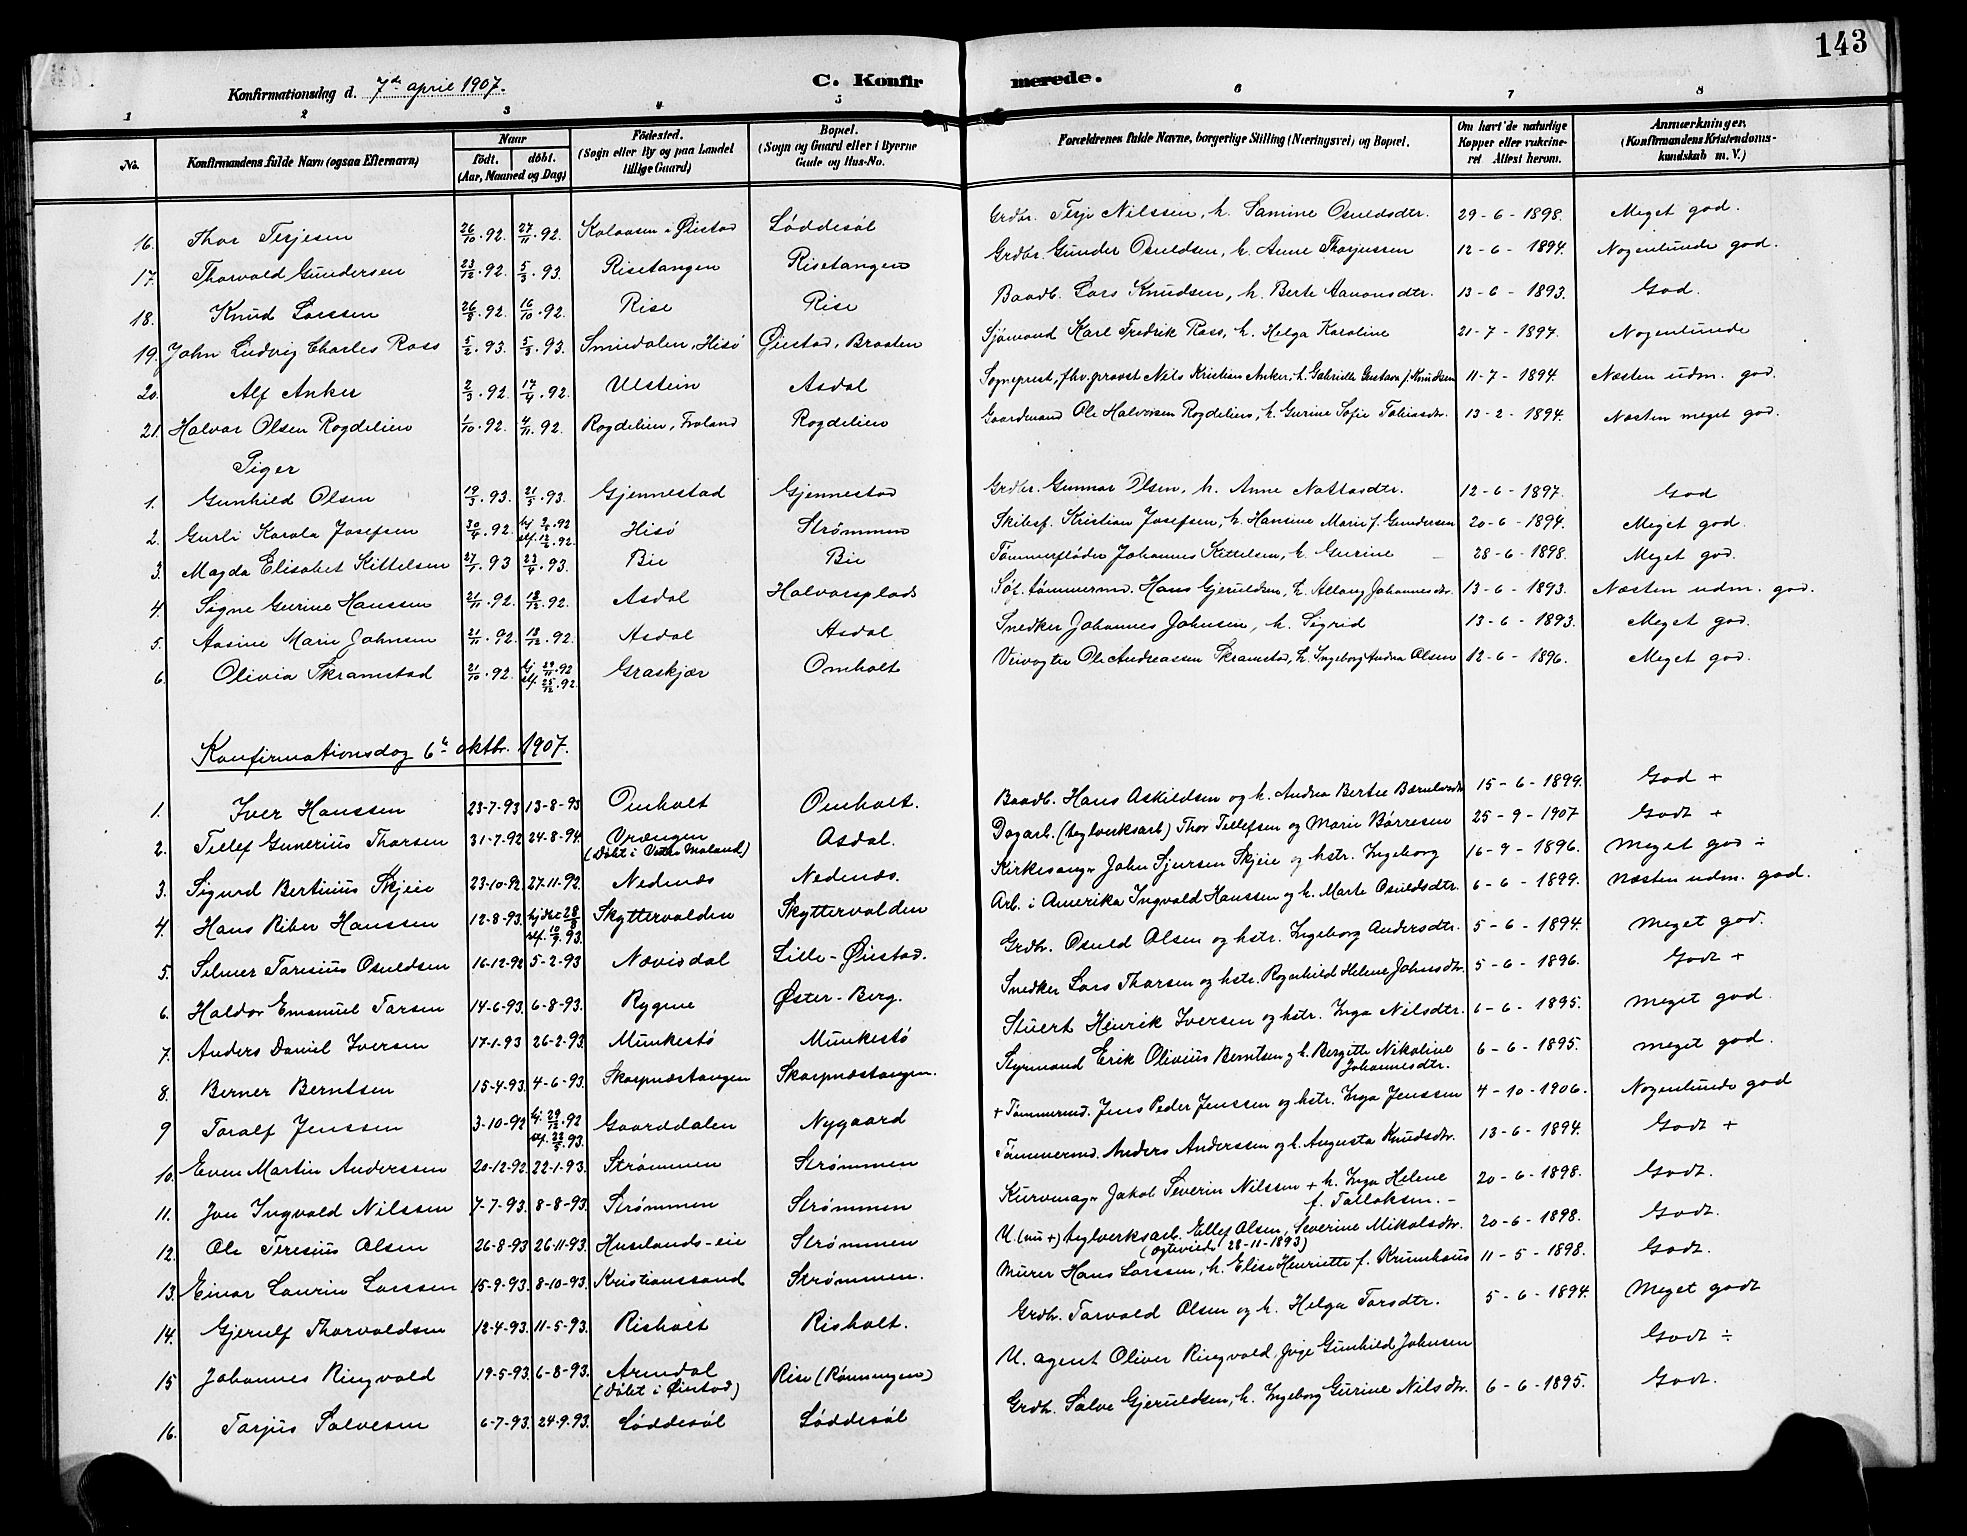 143
Konfirmationsdag d. 7de april 1907.
C. Konfirmerede.
1 2 3 4 5 6 7 8
No. Konfirmandens fulde Navn (ogsaa Efternavn) Naar født. døbt. (Aar, Maaned og Dag) Fødested. (Sogn eller By og paa Landet tillige Gaard) Bopæl. (Sogn og Gaard eller i Byerne Gade og Hus-No. Forældrenes fulde Navne, borgerlige Stilling (Næringsvei) og Bopæl. Om havt de naturlige Kopper eller vaksineret Attest herom. Anmærkninger. (Konfirmandens Kristendomskundskab m. V.)
16. Thor Terjesen 26/10.92. 27/11.92. Øiestad Løddesøl Grdbr. Terje Nilssen, h. Samine Osuldsdtr. 29-6-1898. Meget god.
17. Thorvald Gundersen 23/12.92. 5/3.93. Risetangen Risetangen Grdbr. Gunder Osuldsen, h. Anne Thorjussen 12-6-1894. Nogenlunde god.
18. Knud Larssen 26/8.92. 16/10.92. Rise Rise Baadb. Lars Knudsen, h. Berte Aanonsdtr. 13-6-1893. God.
19. John Ludvig Charles Ross 5/2.93. 5/3.93. Smiedalen, Hisø Øiestad, Braaten Sjømand Karl Fredrik Ross, h. Helga Karoline 21-7-1894. Nogenlunde
20. Alf Anker 2/3.92. 17/4.92. Ulstein Asdal Sogneprest, fhv. provst Nils Kristian Anker, h. Gabrielle Gustava f. Knudsen 11-7-1894. Næsten udm. god.
21. Halvor Olsen Rogdelien 1/10.92. 4/11.92. Rogdelien, Froland Rogdelien Gaardmand Ole Halvorsen Rogdelien, h. Gurine Sofie Tobiasdtr. 13-2-1894. Næsten meget god.
Piger
1. Gunhild Olsen 19/3.93. 21/5.93. Gjennestad Gjennestad Grdbr. Gunnar Olsen, h. Anne Nattasdtr. 12-6-1897. God
2. Gurli Karola Josefsen 30/4.92. Hisø Strømmen Skibsf. Kristian Josefsen, h. Hansine Marie f. Gundersen 20-6-1894. Meget god.
3. Magda Elisabet Kittelsen 27/1.93 23/4.93. Bie Bie Tømmerfløder Johannes Kittelsen, h. Gurine 28-6-1898. Meget god.
4. Signe Gurine Hanssen 21/11.92. 18/12.92. Asdal Halvorsplads Søf. tømmermd. Hans Gjeruldsen, h. Allaug Johannesdtr. 13-6-1893. Næsten udm. god.
5. Aasine Marie Johnsen 21/11.92. 18/12.92. Asdal Asdal Snedker Johannes Johnsen, h. Sigrid 13-6-1893. Meget god.
6. Olivia Skramstad 21/10.92. hj. 29/11.92 stf. 25/12.92. Graskjær Omholt Veivogter Ole Andreassen Skramstad, h. Ingeborg Andrea Olsen 12-6-1896. Meget god.
Konfirmationsdag 6te oktbr. 1907.
1. Iver Hanssen 23-7-93 13-8-93 Omholt Omholt. Baadb. Hans Askildsen og h. Andrea Bertie 15-6-1899. God +
2. Tellef Gunerius Thorsen 31-7-92 24-8-94. Vrængen (Døbt i Østre Moland) Asdal. Dagarb. (teglverksarb) Thor Tellefsen og Marie Børresen 25-9-1907 Godt +
3. Sigurd Bertinius Skjeie 23-10-92. 27-11-92. Nedenæs Nedenæs. Kirkesanger John Sjursen Skjeie og hstr. Ingeborg 16-9-1896. Meget god ÷
4. Hans Riber Hanssen 12-8-93. hjdbt 28/8 stf. 10/9.93. Skyttervolden Skyttervolden Arb. i Amerika Ingvald Hanssen og h. Marte Osuldsdtr. 6-6-1899. Næsten udm. god.
5. Selmer Taresius Osuldsen 16-12-92 5-2-93 Nævisdal Lille-Øiestad. Grdbr. Osuld Olsen og hstr. Ingeborg Andersdtr. 5-6-1894. Meget god.
6. Haldor Emanuel Tarsen 14-6-93. 6-8-93. Rygene Øster-Berg. Snedker Lars Thorsen og hstr. Ragnhild Helene Johnsdtr. 5-6-1896. Godt +
7. Anders Daniel Iversen 17-1-93 26-2-93. Munkestø Munkestø Stuert Henrik Iversen og hstr. Inga Nilsdtr. 6-6-1895. Meget god.
8. Berner Berntsen 15-4-93. 4-6-93. Skarpnæstangen Skarpnæstangen. Styrmand Erik Olivius Berntsen og h. Bergitte Nikoline Johannesdtr. 6-6-1895. Meget god.
9 Toralf Jenssen 3-10-92 hj. 29/12.92 stf. 22/5.93. Gaarddalen Nygaard + Tømmermd. Jens Peder Jenssen og hstr. Inga Jenssen 4-10-1906. Nogenlunde god
10. Even Martin Anderssen 20-12-92. 22-1-93. Strømmen Strømmen Tømmermd. Anders Anderssen og h. Augusta Knudsdtr. 13-6-1894. Godt +
11. Jon Ingvald Nilssen 7-7-93. 8-8-93. Strømmen Strømmen Kurvmager Jakob Severin Nilssen + h. Inga Helene f. Tallaksen. - 20-6-1898. Godt.
12. Ole Teresius Olsen 26-8-93 26-11-93. Huselands-eie Strømmen U. (nu +) teglverksarb. Ellef Olsen, Severine Mikalsdtr. (ægteviede 28-11-1893) 20-6-1898. Godt.
13. Einar Laurin Larssen 15-9-93. 8-10-93. Kristianssand Strømmen. Murer Hans Larssen, h. Elise Henriette f. Krumhaus 11-5-1898. Godt.
14. Gjerulf Thorvaldsen 12-4-93. 11-5-93. Risholt Risholt. Grdbr. Tarvald Olsen og h. Helga Tarsdtr. 5-6-1894. Meget godt
15 Johannes Ringvold 19-5-93. 6-8-93. Arendal (Døbt i Øiestad) Rise (Rønningen) U. agent Oliver Ringvold, Gunhild Johnsen Godt ÷
16. Tarjus Salvesen 6-7-93. 24-9-93. Løddesøl Løddesøl Grdbr. Salve Gjeruldsen, h. Ingeborg Gurine Nilsdtr. 6-6-1895. Godt.